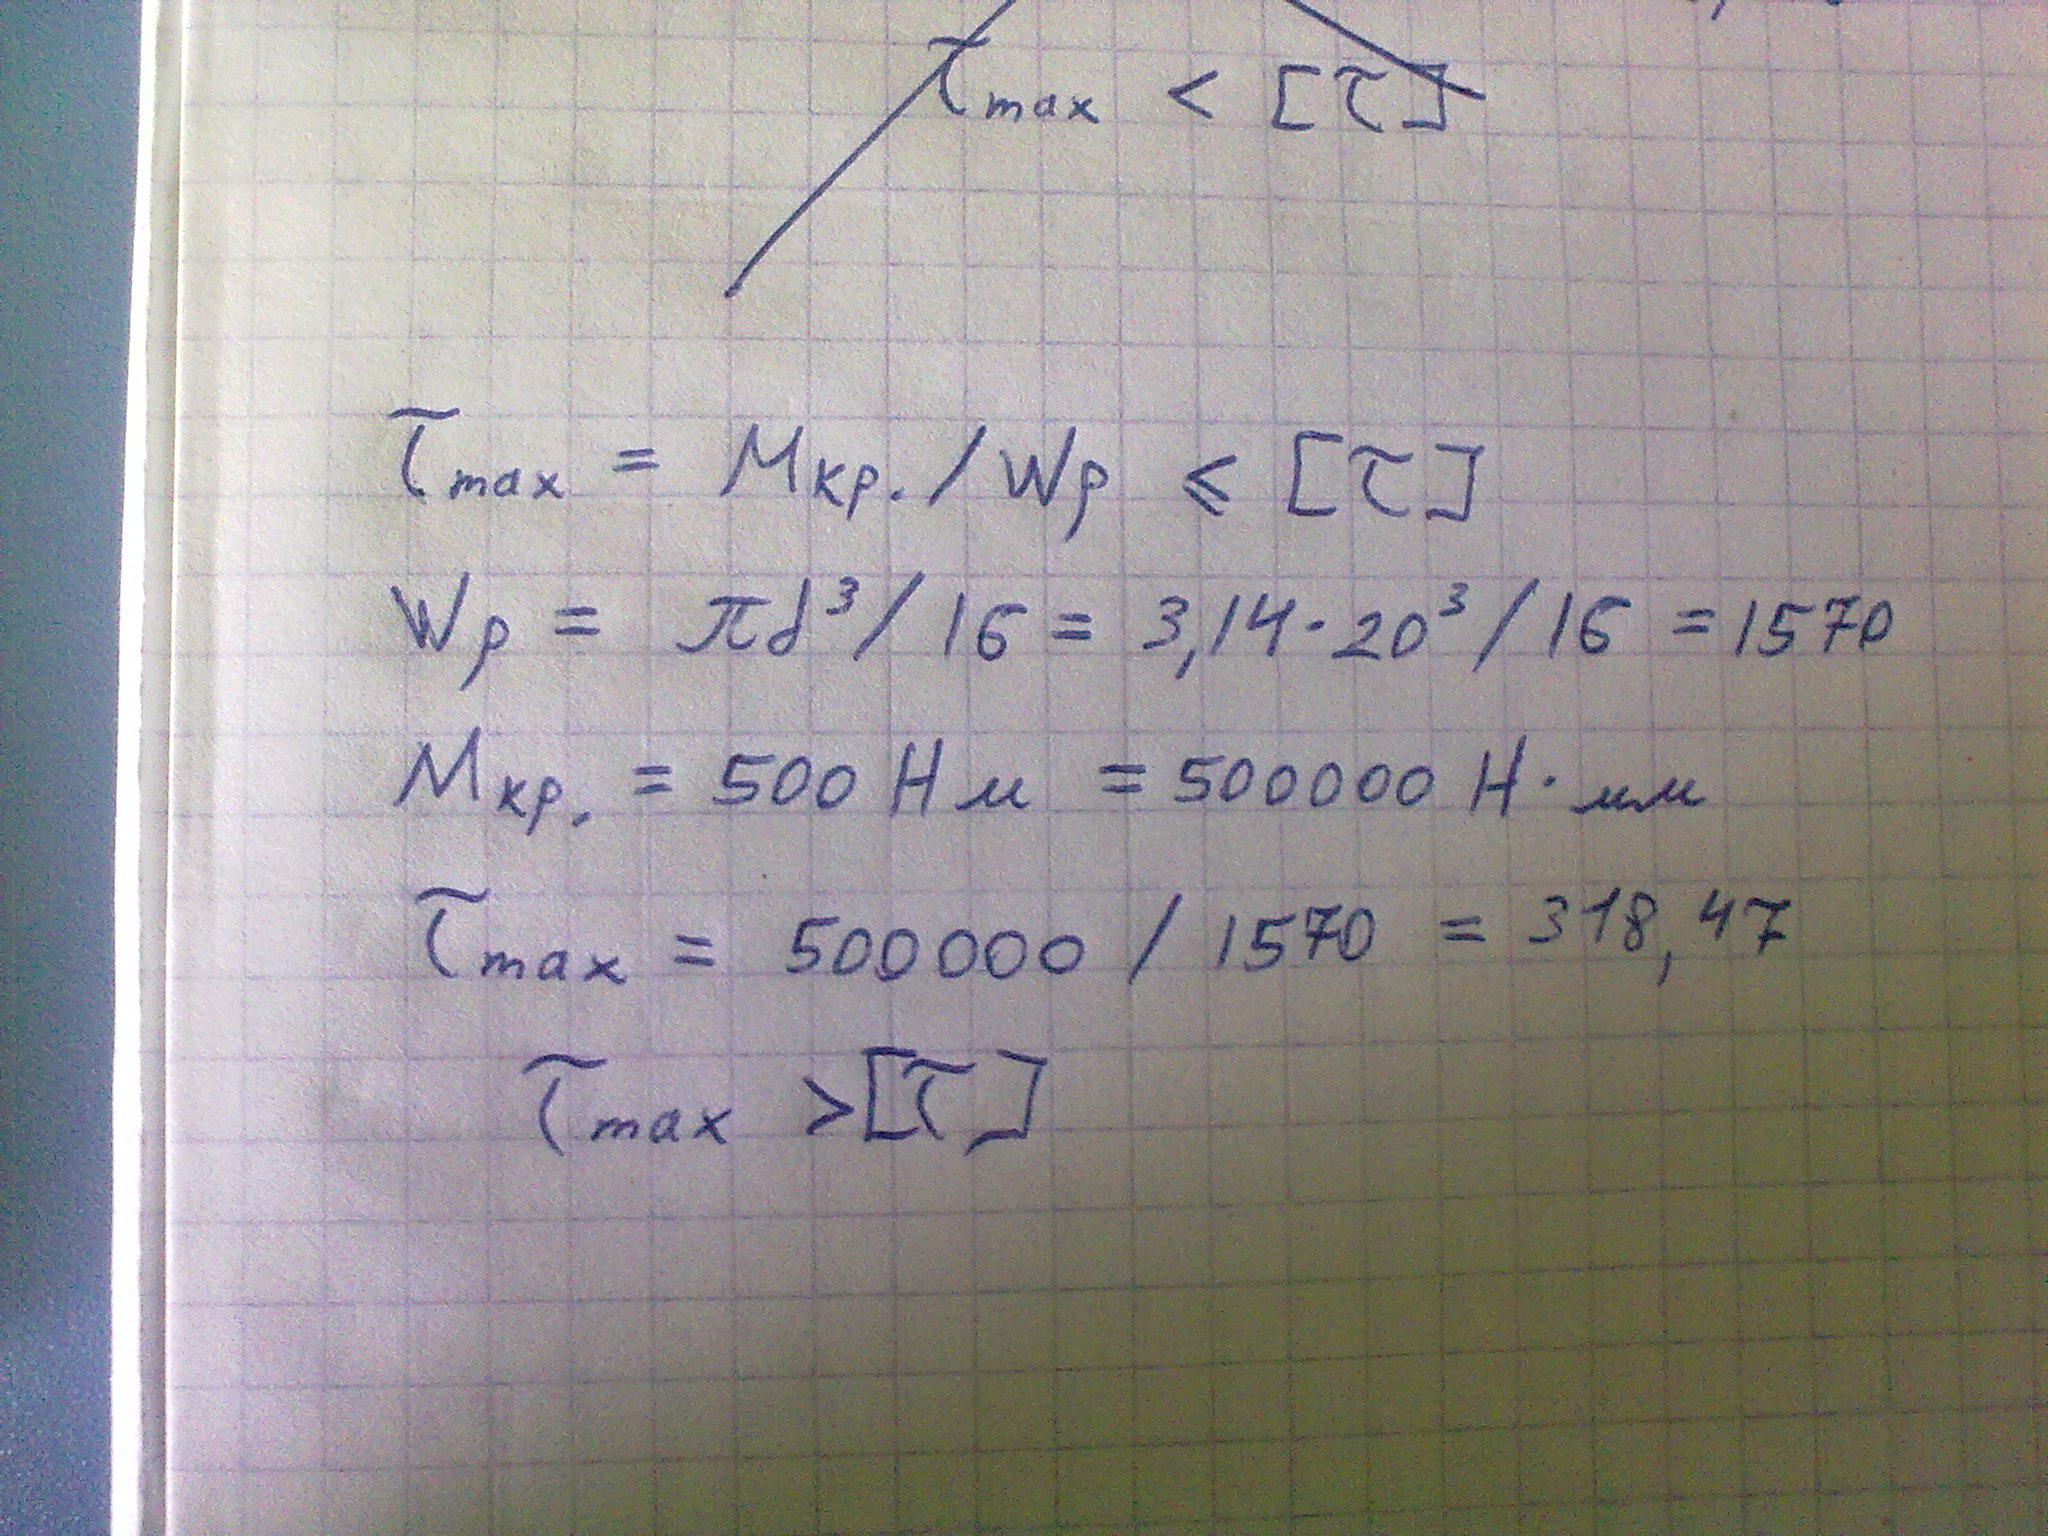 τmax < [τ]
τmax = Мкр. / Wp ⩽ [τ]
Wp = πd³ / 16 = 3,14 · 20³ / 16 = 1570
Мкр. = 500 Н м = 500000 Н · мм
τmax = 500000 / 1570 = 318,47
τmax > [τ]